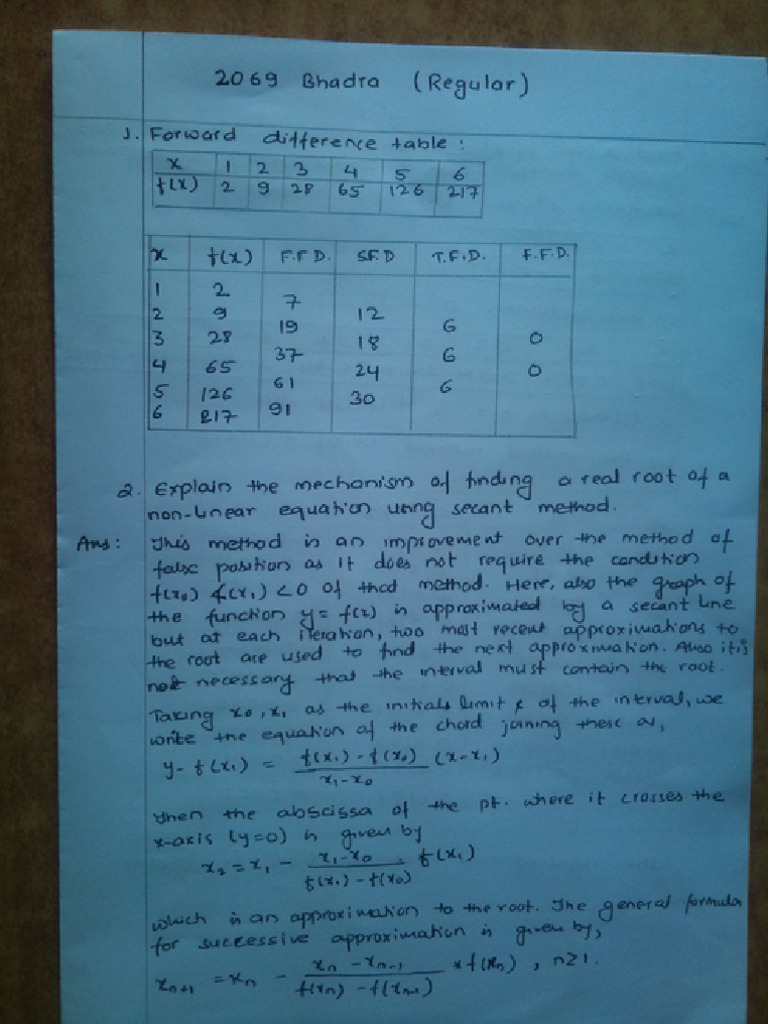 2069 Bhadra (Regular)
1. Forward difference table :
x 1 2 3 4 5 6
f(x) 2 9 28 65 126 217
x f(x) F.F.D. S.F.D T.F.D. F.F.D.
1 2
7
2 9 12
19 6
3 28 18 0
37 6
4 65 24 0
61 6
5 126 30
91
6 217
2. Explain the mechanism of finding a real root of a
non-linear equation using secant method.
Ans: This method is an improvement over the method of
false position as it does not require the condition
f(x₀) f(x₁) <0 of that method. Here, also the graph of
the function y= f(x) is approximated by a secant line
but at each iteration, two most recent approximations to
the root are used to find the next approximation. Also it is
not necessary that the interval must contain the root.
Taking x₀, x₁ as the initials limit of the interval, we
write the equation of the chord joining these as,
y- f(x₁) = f(x₁) - f(x₀) / x₁-x₀ (x-x₁)
Then the abscissa of the pt. where it crosses the
x-axis (y=0) is given by
x₂ = x₁ - x₁-x₀ / f(x₁) - f(x₀) . f(x₁)
which is an approximation to the root. The general formula
for successive approximation is given by,
xₙ₊₁ = xₙ - xₙ - xₙ₋₁ / f(xₙ) - f(xₙ₋₁) * f(xₙ) , n≥1.